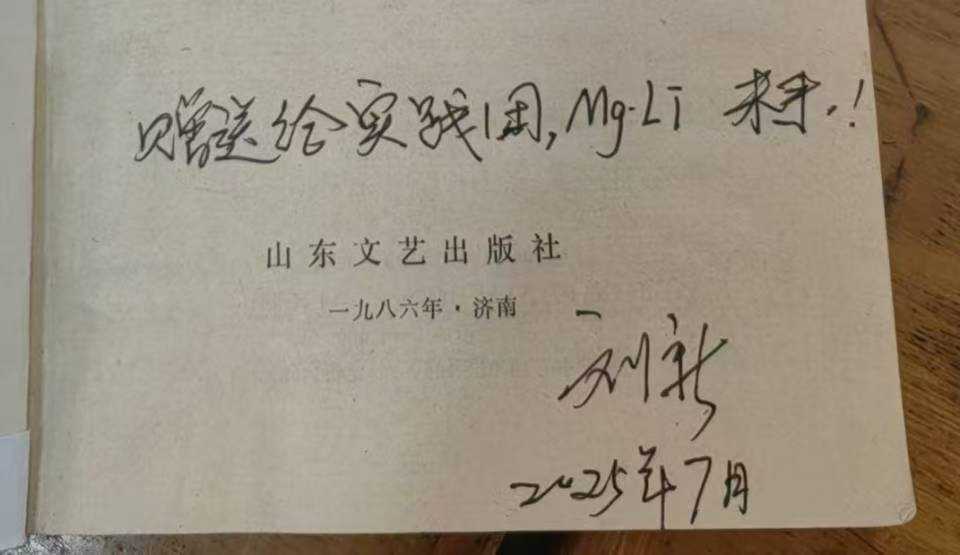 赠送给实践团, Mg·Li !
山东文艺出版社
一九八六年·济南
刘新
2025年7月